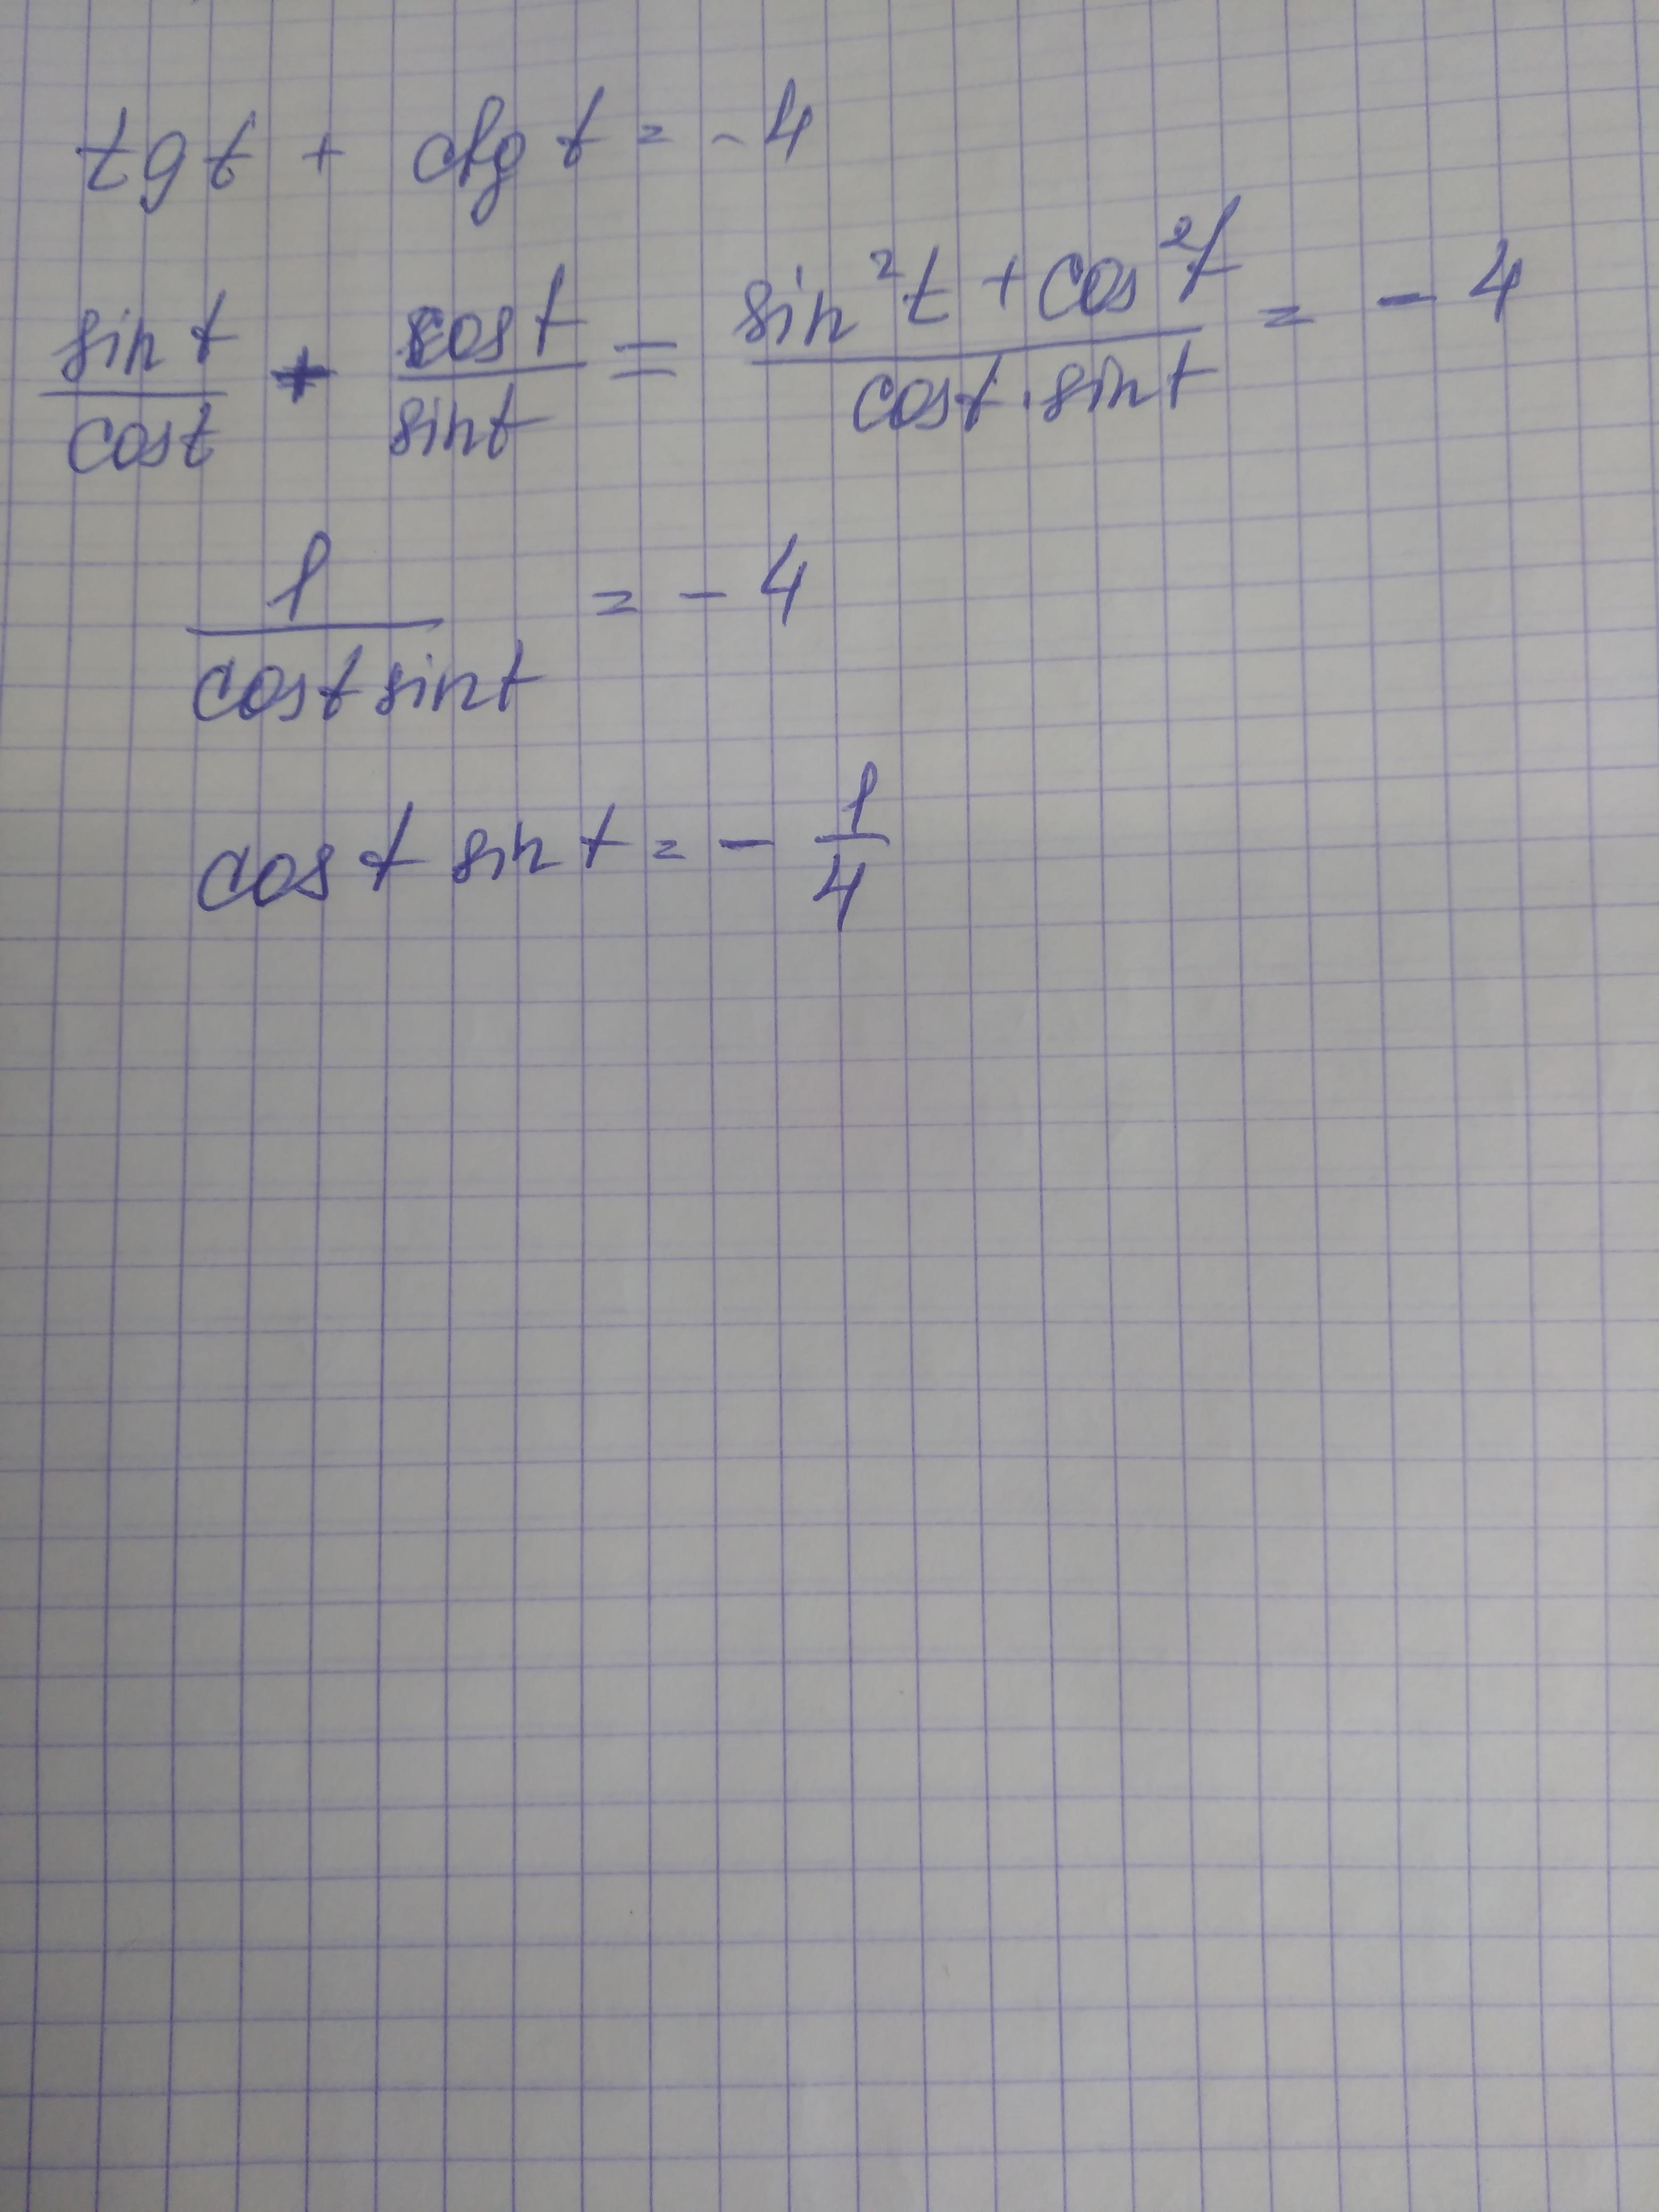 tg t + ctg t = - 4
sin t / cos t + cos t / sin t = sin²t + cos²t / cos t · sin t = - 4
1 / cos t sin t = - 4
cos t sin t = - 1/4